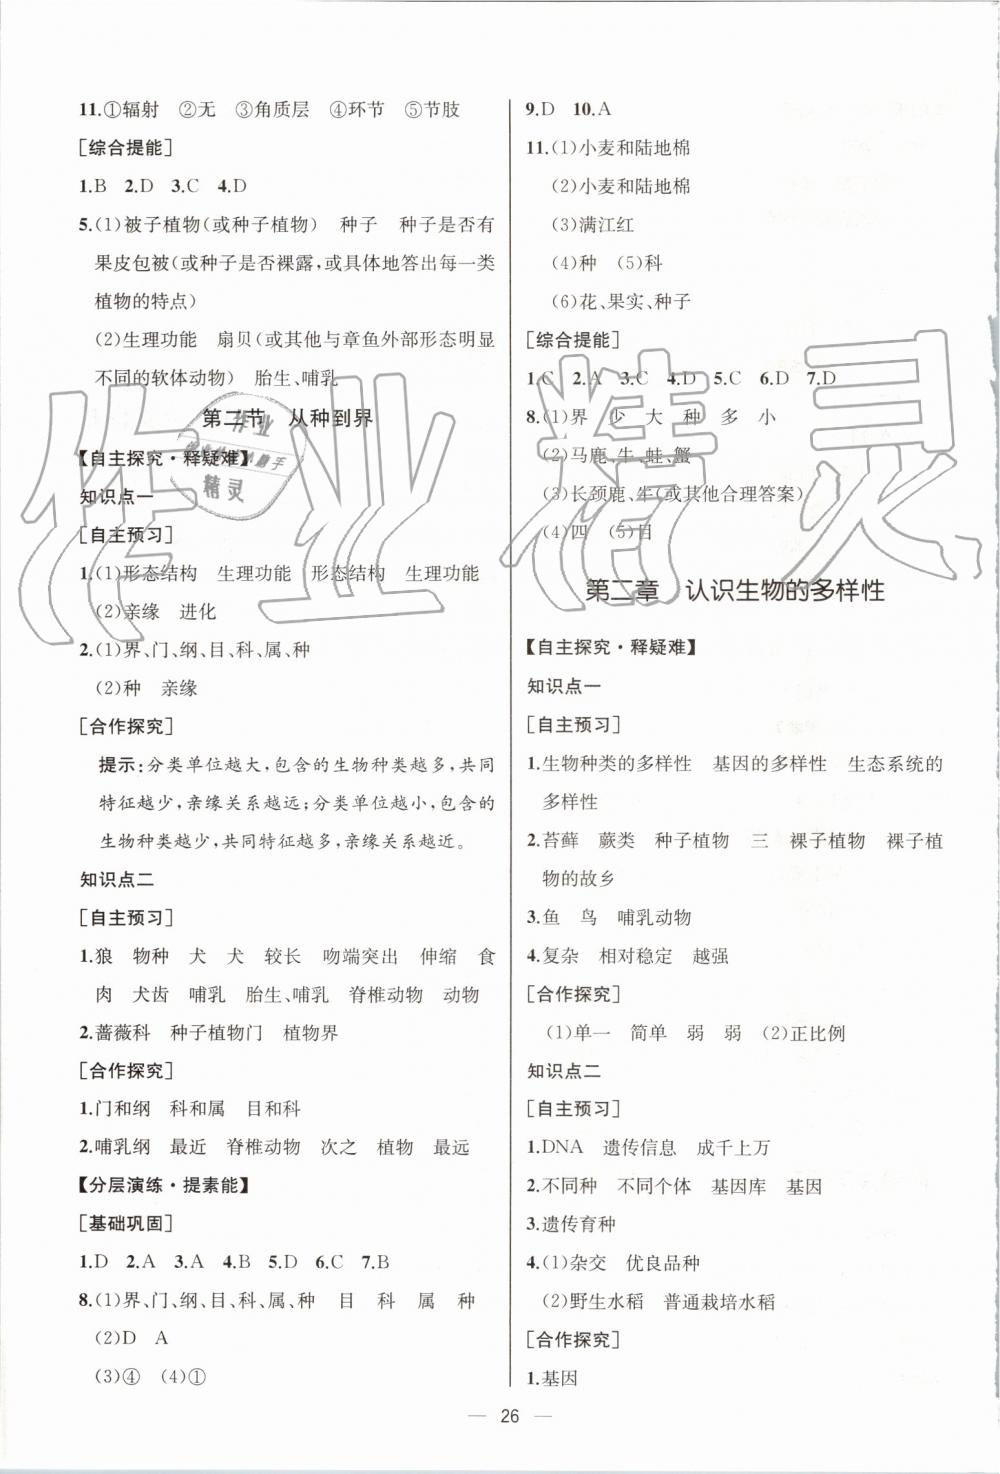 11.①辐射　②无　③角质层　④环节　⑤节肢
[综合提能]
1.B　2.D　3.C　4.D
5.(1)被子植物(或种子植物)　种子　种子是否有
果皮包被(或种子是否裸露,或具体地答出每一类
植物的特点)
(2)生理功能　扇贝(或其他与章鱼外部形态明显
不同的软体动物)　胎生、哺乳
第二节　从种到界
【自主探究·释疑难】
知识点一
[自主预习]
1.(1)形态结构　生理功能　形态结构　生理功能
(2)亲缘　进化
2.(1)界、门、纲、目、科、属、种
(2)种　亲缘
[合作探究]
提示:分类单位越大,包含的生物种类越多,共同
特征越少,亲缘关系越远;分类单位越小,包含的
生物种类越少,共同特征越多,亲缘关系越近。
知识点二
[自主预习]
1.狼　物种　犬　犬　较长　吻端突出　伸缩　食
肉　犬齿　哺乳　胎生、哺乳　脊椎动物　动物
2.蔷薇科　种子植物门　植物界
[合作探究]
1.门和纲　科和属　目和科
2.哺乳纲　最近　脊椎动物　次之　植物　最远
【分层演练·提素能】
[基础巩固]
1.D　2.A　3.A　4.B　5.D　6.C　7.B
8.(1)界、门、纲、目、科、属、种　目　科　属　种
(2)D　A
(3)④　(4)①
9.D　10.A
11.(1)小麦和陆地棉
(2)小麦和陆地棉
(3)满江红
(4)种　(5)科
(6)花、果实、种子
[综合提能]
1.C　2.A　3.C　4.D　5.C　6.D　7.D
8.(1)界　少　大　种　多　小
(2)马鹿、牛、蛙、蟹
(3)长颈鹿、牛(或其他合理答案)
(4)四　(5)目
第二章　认识生物的多样性
【自主探究·释疑难】
知识点一
[自主预习]
1.生物种类的多样性　基因的多样性　生态系统的
多样性
2.苔藓　蕨类　种子植物　三　裸子植物　裸子植
物的故乡
3.鱼　鸟　哺乳动物
4.复杂　相对稳定　越强
[合作探究]
(1)单一　简单　弱　弱　(2)正比例
知识点二
[自主预习]
1.DNA　遗传信息　成千上万
2.不同种　不同个体　基因库　基因
3.遗传育种
4.(1)杂交　优良品种
(2)野生水稻　普通栽培水稻
[合作探究]
1.基因
— 26 —
作业精灵
作业
精灵